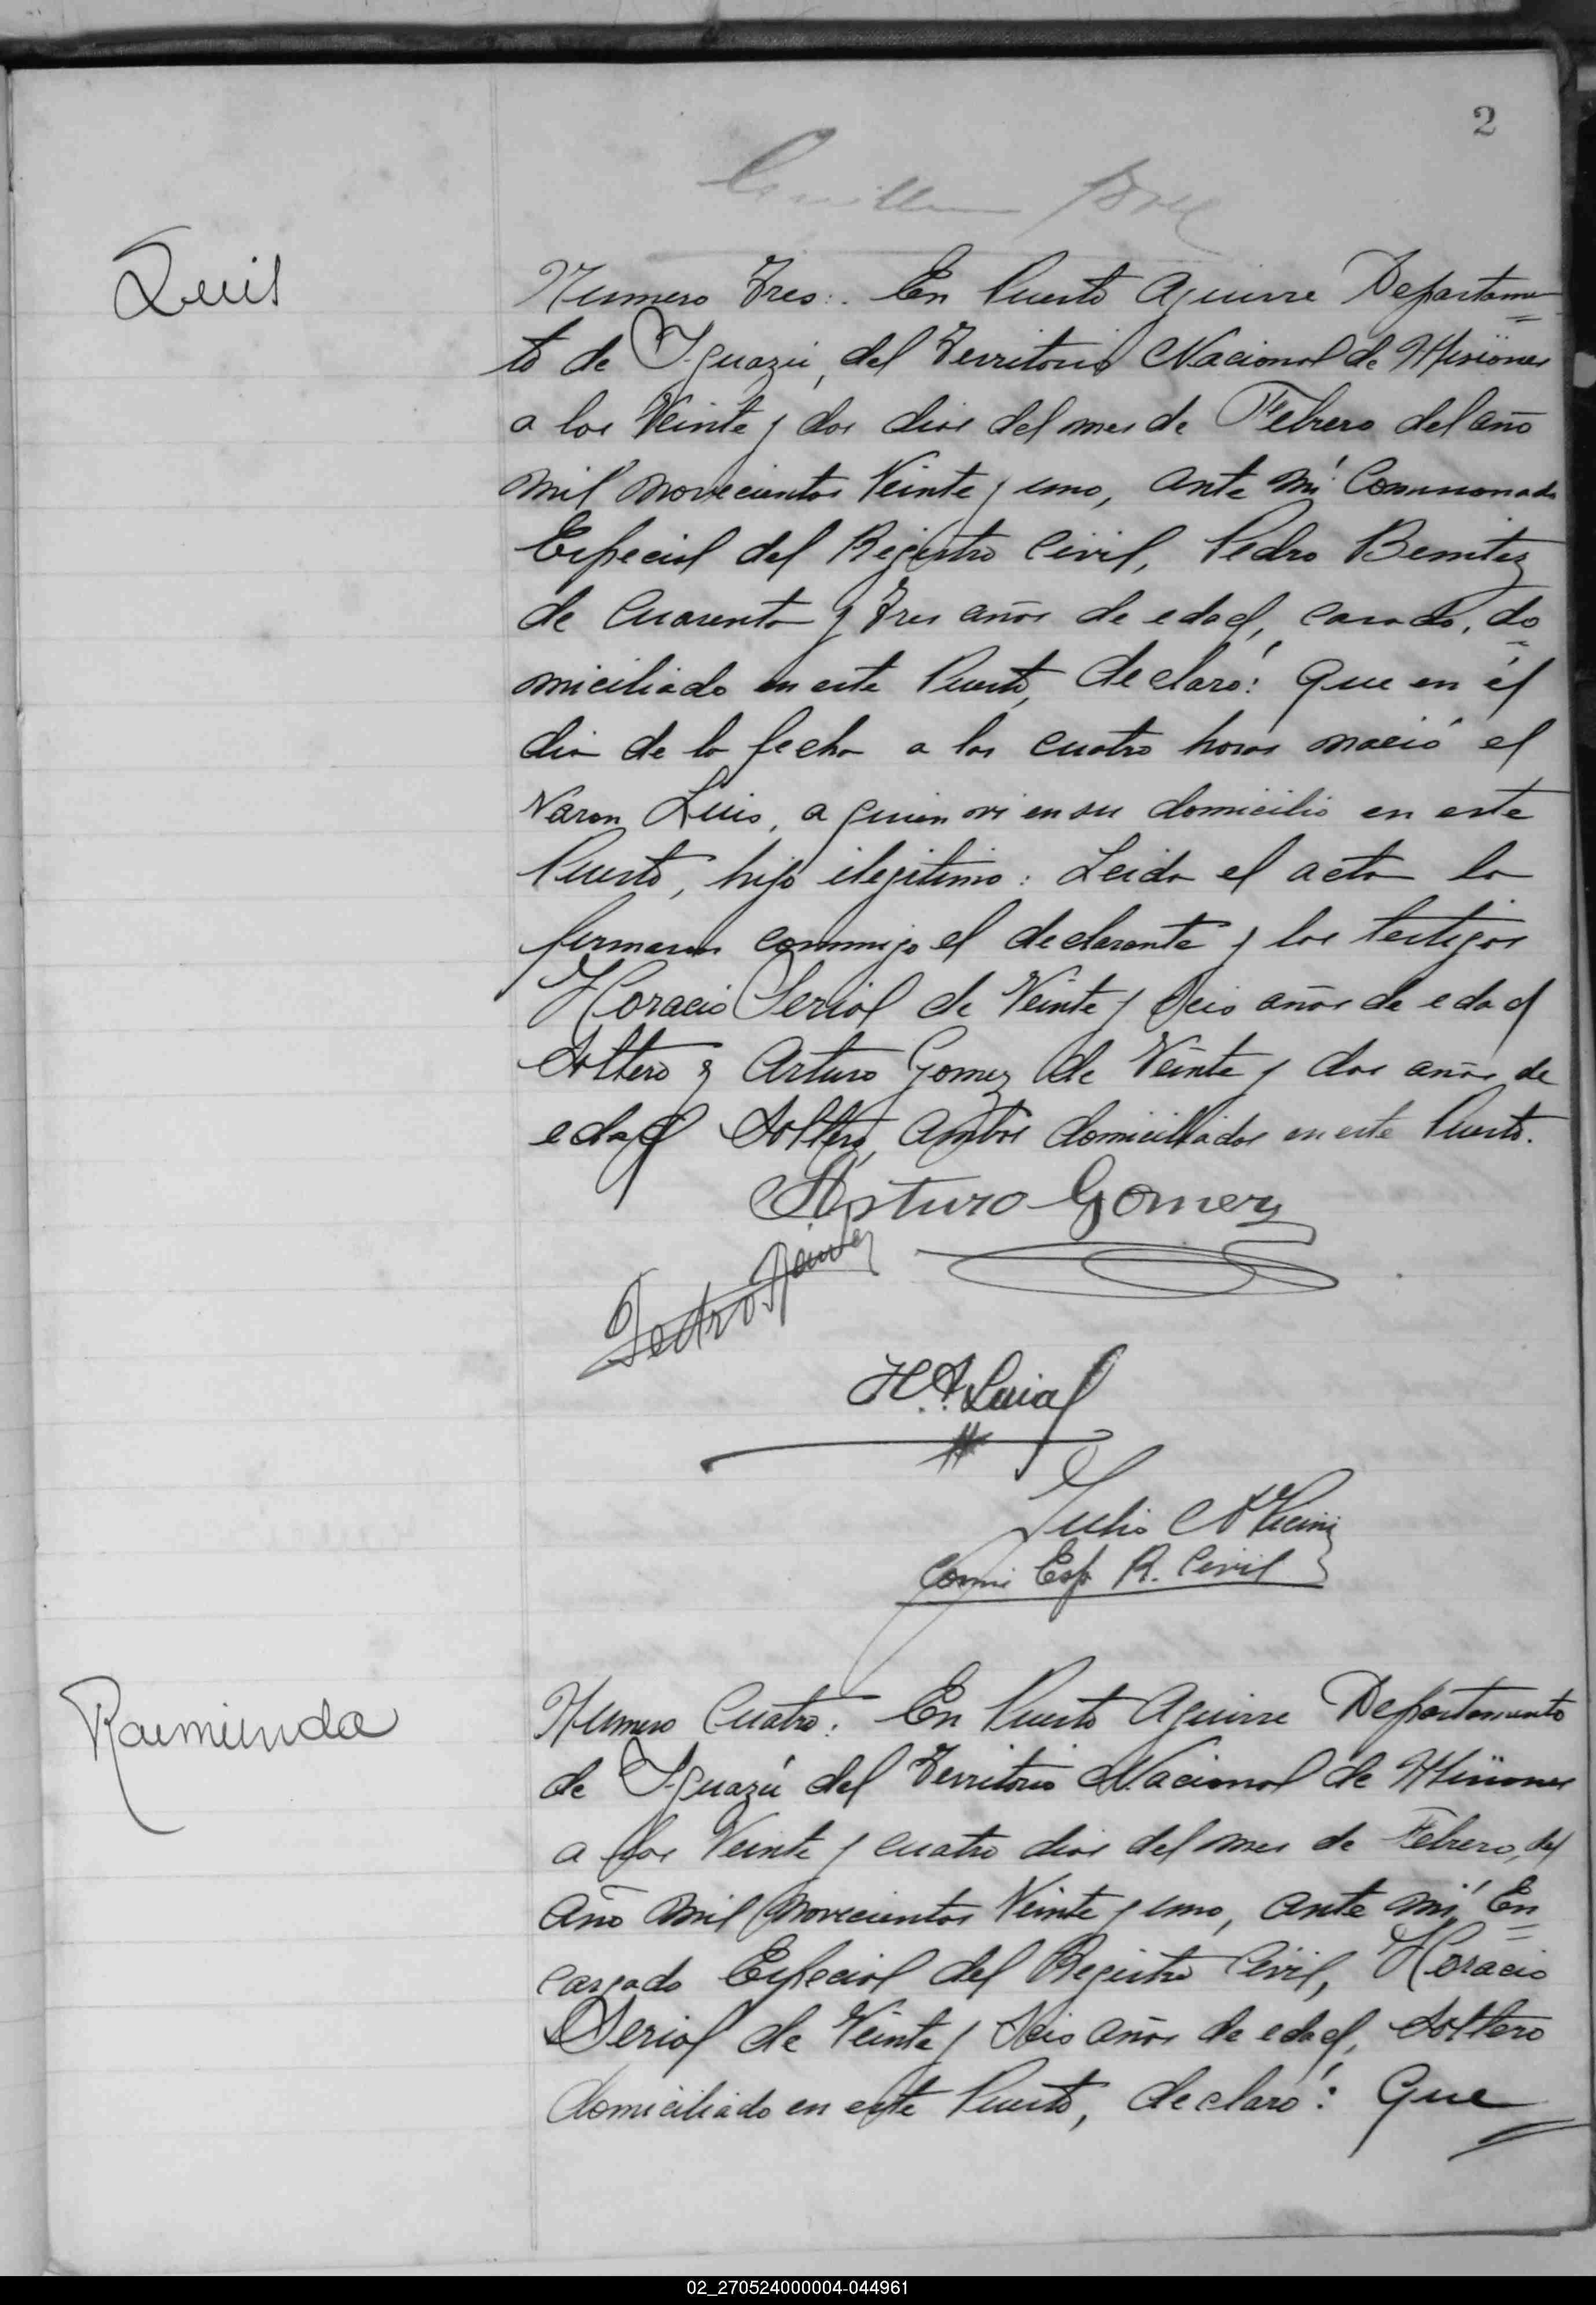 2
Luis
Numero Tres:. En Puerto Aguirre Departamen
to de Iguazú, del Territorio Nacional de Misiones
a los Veinte y dos dias del mes de Febrero del año
mil novecientos Veinte y uno, ante mí Comisionado
Especial del Registro Civil, Pedro Benitez
de Cuarenta y Tres años de edad, casado, do
miciliado en este Puerto, declaró: Que en él
dia de la fecha a las cuatro horas nació el
Varon Luis, a quien vi en su domicilio en este
Puerto, hijo ilegitimo: Leida el acta la
firmaron conmigo el declarante y los testigos
Horacio Serial de Veinte y Seis años de edad
Soltero y Arturo Gomez de Veinte y dos años de
edad Soltero, ambos domiciliados en este Puerto.
Arturo Gomez
Pedro
H. A. Serial
Julio
Comi Esp R. Civil
Raimunda
Numero Cuatro: En Puerto Aguirre Departamento
de Iguazú del Territorio Nacional de Misiones
a los Veinte y cuatro dias del mes de Febrero, del
año mil novecientos Veinte y uno, ante mí, En
cargado Especial del Registro Civil, Horacio
Serial de Veinte y Seis años de edad, Soltero
domiciliado en este Puerto, declaró: Que
02_270524000004-044961